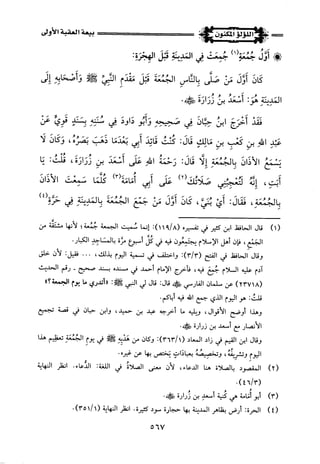 اللؤلؤ المكنون
بيعة العقبة الأولى
* أول جمعة(١) جمعت في المدينة قبل الهجرة:
كان أول من صلى بالناس الجمعة قبل مقدم النبي ﷺ وأصحابه إلى
المدينة هو: أسعد بن زرارة ﷺ.
فقد أخرج ابن حبان في صحيحه وأبو داود في سننه بسند قوي عن
عبد الله بن كعب بن مالك قال: كنت قائد أبي بعدما ذهب بصره، وكان لا
يسمع الأذان بالجمعة إلا قال: رحمة الله على أسعد بن زرارة، قلت: يا
أبت، إنه لتعجبني صلاتك(٢) على أبي أمامة(٣) كلما سمعت الأذان
بالجمعة، فقال: أي بني، كان أول من جمع الجمعة بالمدينة في حرة(٤)
(١) قال الحافظ ابن كثير في تفسيره (١١٩/٨): إنما سميت الجمعة جمعة؛ لأنها مشتقة من
الجمع، فإن أهل الإسلام يجتمعون فيه في كل أسبوع مرة بالمساجد الكبار.
وقال الحافظ في الفتح (٣/٣): واختلف في تسمية اليوم بذلك ... فقيل: لأن خلق
آدم عليه السلام جمع فيه، فأخرج الإمام أحمد في مسنده بسند صحيح - رقم الحديث
(٢٣٧١٨) عن سلمان الفارسي ﷺ قال: قال لي النبي ﷺ: «أتدري ما يوم الجمعة؟»
قلت: هو اليوم الذي جمع الله فيه أباكم.
وهذا أصح الأقوال، ويليه ما أخرجه عبد بن حميد، وابن حبان في قصة تجميع
الأنصار مع أسعد بن زرارة ﷺ.
وقال ابن القيم في زاد المعاد (٣٦٣/١): وكان من هديه ﷺ في يوم الجمعة تعظيم هذا
اليوم وتشريفه، وتخصيصه بعبادات يختص بها عن غيره.
(٢) المقصود بالصلاة هنا الدعاء، لأن معنى الصلاة في اللغة: الدعاء. انظر النهاية
(٤٦/٣).
(٣) أبو أمامة هي كنية أسعد بن زرارة ﷺ.
(٤) الحرة: أرض بظاهر المدينة بها حجارة سود كثيرة. انظر النهاية (٣٥١/١).
٥٦٧